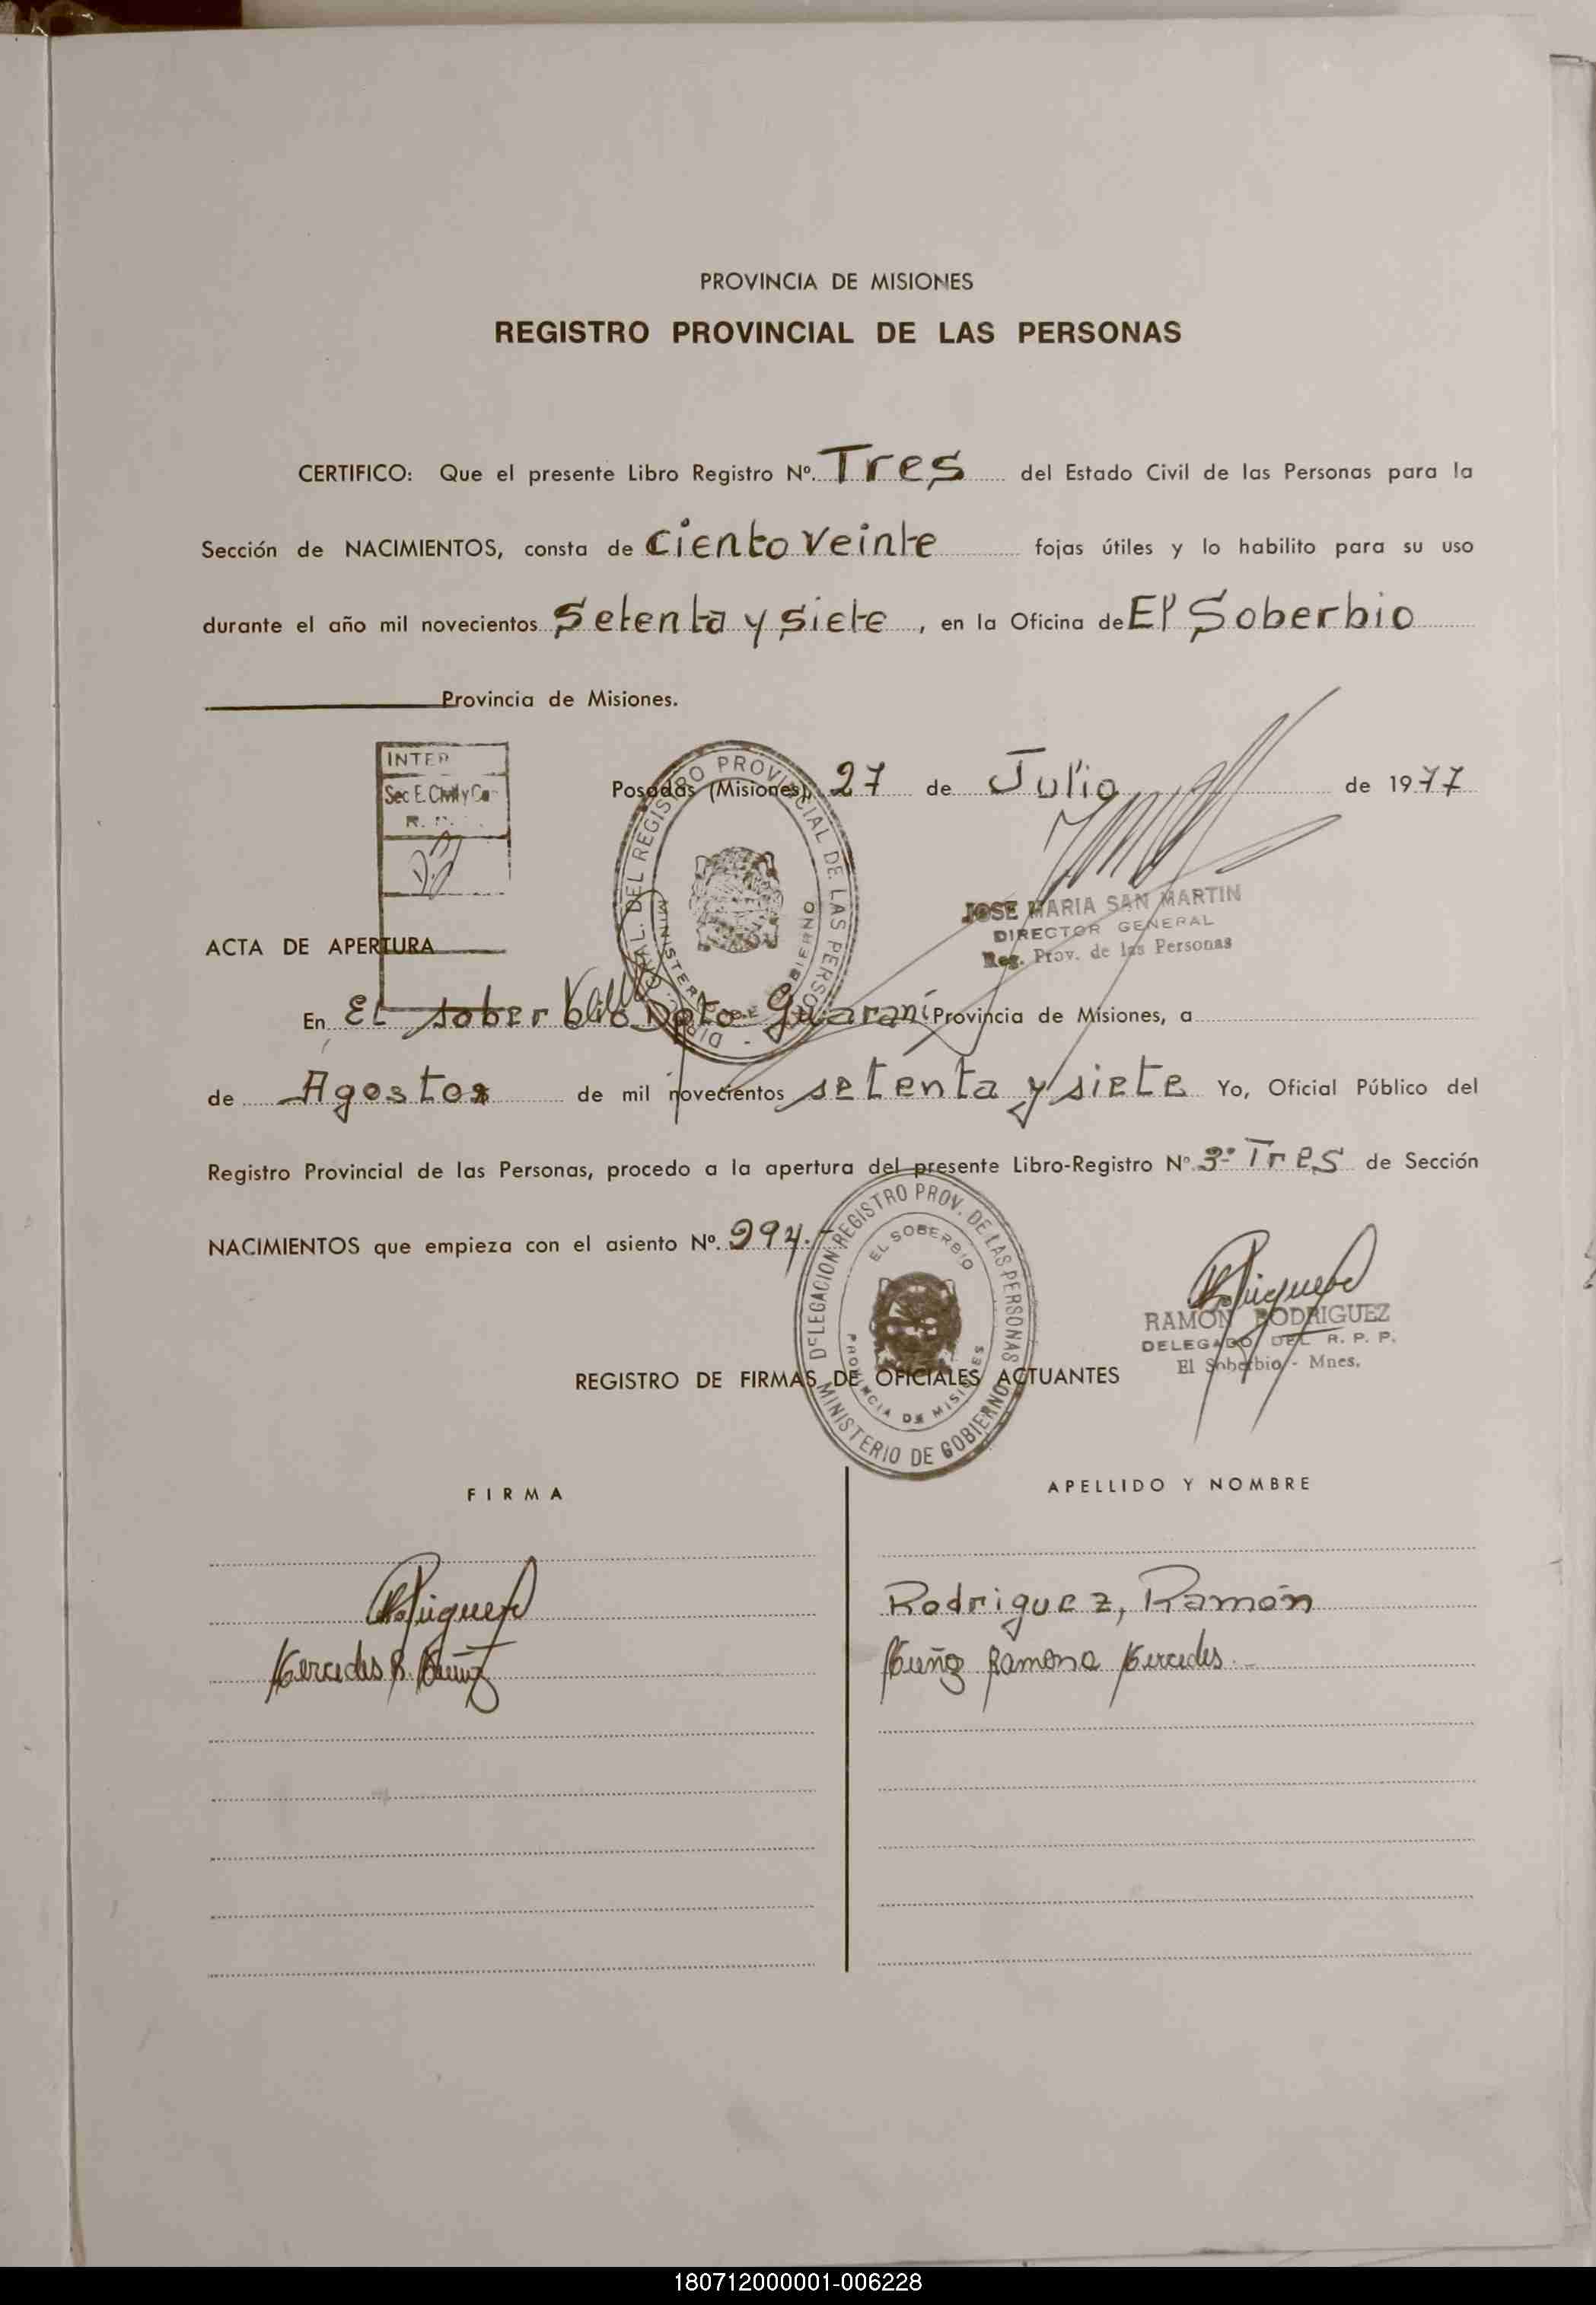 PROVINCIA DE MISIONES
REGISTRO PROVINCIAL DE LAS PERSONAS
CERTIFICO: Que el presente Libro Registro Nº. Tres del Estado Civil de las Personas para la
Sección de NACIMIENTOS, consta de Ciento Veinte fojas útiles y lo habilito para su uso
durante el año mil novecientos Setenta y Siete, en la Oficina de El Soberbio
Provincia de Misiones.
INTER
Sec E. Civil y Ca
R.
Posadas (Misiones), 27 de Julio de 1977
DEL REGISTRO PROVINCIAL DE LAS PERSONAS
MINISTERIO DE GOBIERNO
JOSE MARIA SAN MARTIN
DIRECTOR GENERAL
Reg. Prov. de las Personas
ACTA DE APERTURA
En El soberbio Dpto Guaraní Provincia de Misiones, a
de Agostos de mil novecientos setenta y siete Yo, Oficial Público del
Registro Provincial de las Personas, procedo a la apertura del presente Libro-Registro Nº 3º Tres de Sección
NACIMIENTOS que empieza con el asiento Nº. 994.-
DELEGACION REGISTRO PROV. DE LAS PERSONAS
EL SOBERBIO
PROVINCIA DE MISIONES
MINISTERIO DE GOBIERNO
RAMON RODRIGUEZ
DELEGADO DEL R. P. P.
El Soberbio - Mnes.
REGISTRO DE FIRMAS DE OFICIALES ACTUANTES
FIRMA APELLIDO Y NOMBRE
Rodriguez, Ramón
Mercedes R. Muñoz Muñoz Ramona Mercedes.-
180712000001-006228